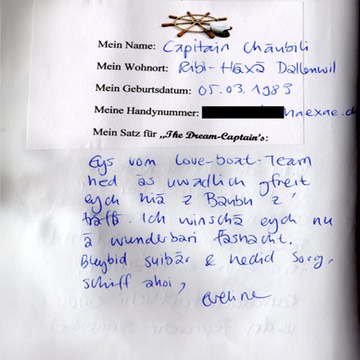 Mein Name: Capitain Chäubili
Mein Wohnort: Ribi-Häxä Dallenwil
Mein Geburtsdatum: 05.03.1983
Meine Handynummer:
Mein Satz für „The Dream-Captain's:
Eys vom Love-boat-Team
hed äs uwadlich gfreit
eych hiä z z'
träffä. Ich winschä eych nu
ä wunderbari Fasnacht.
Bleybid suibär & hedid Sorg,
schiff ahoi,
Eveline